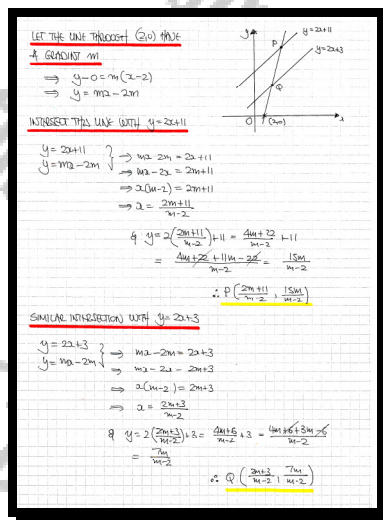 LET THE LINE THROUGH (2,0) HAVE
A GRADIENT m
⇒ y-0 = m(x-2)
⇒ y = mx-2m
y
y=2x+11
P
y=2x+3
Q
O
(2,0)
x
INTERSECT THIS LINE WITH y=2x+11
y=2x+11
y=mx-2m
} ⇒ mx-2m = 2x+11
⇒ mx-2x = 2m+11
⇒ x(m-2) = 2m+11
⇒ x = (2m+11)/(m-2)
& y = 2((2m+11)/(m-2))+11 = (4m+22)/(m-2) + 11
= (4m+22+11m-22)/(m-2) = 15m/(m-2)
∴ P((2m+11)/(m-2), 15m/(m-2))
SIMILAR INTERSECTION WITH y=2x+3
y=2x+3
y=mx-2m
} ⇒ mx-2m = 2x+3
⇒ mx-2x = 2m+3
⇒ x(m-2) = 2m+3
⇒ x = (2m+3)/(m-2)
& y = 2((2m+3)/(m-2))+3 = (4m+6)/(m-2) + 3 = (4m+6+3m-6)/(m-2)
= 7m/(m-2)
∴ Q((2m+3)/(m-2), 7m/(m-2))